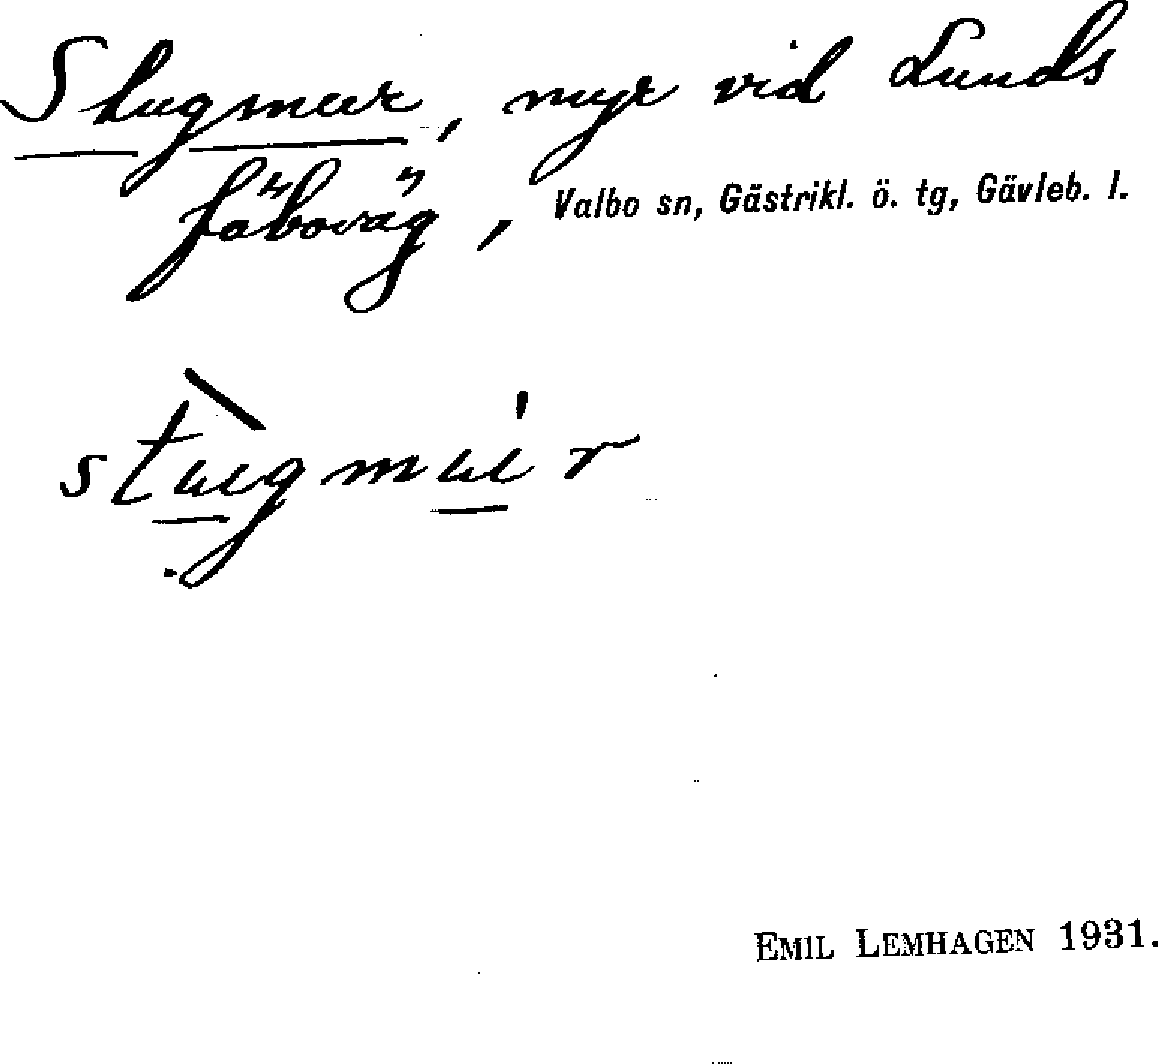 Stugmur, myr vid Lunds
fäboväg, Valbo sn, Gästrikl. ö. tg, Gävleb. l.
EMIL LEMHAGEN 1931.